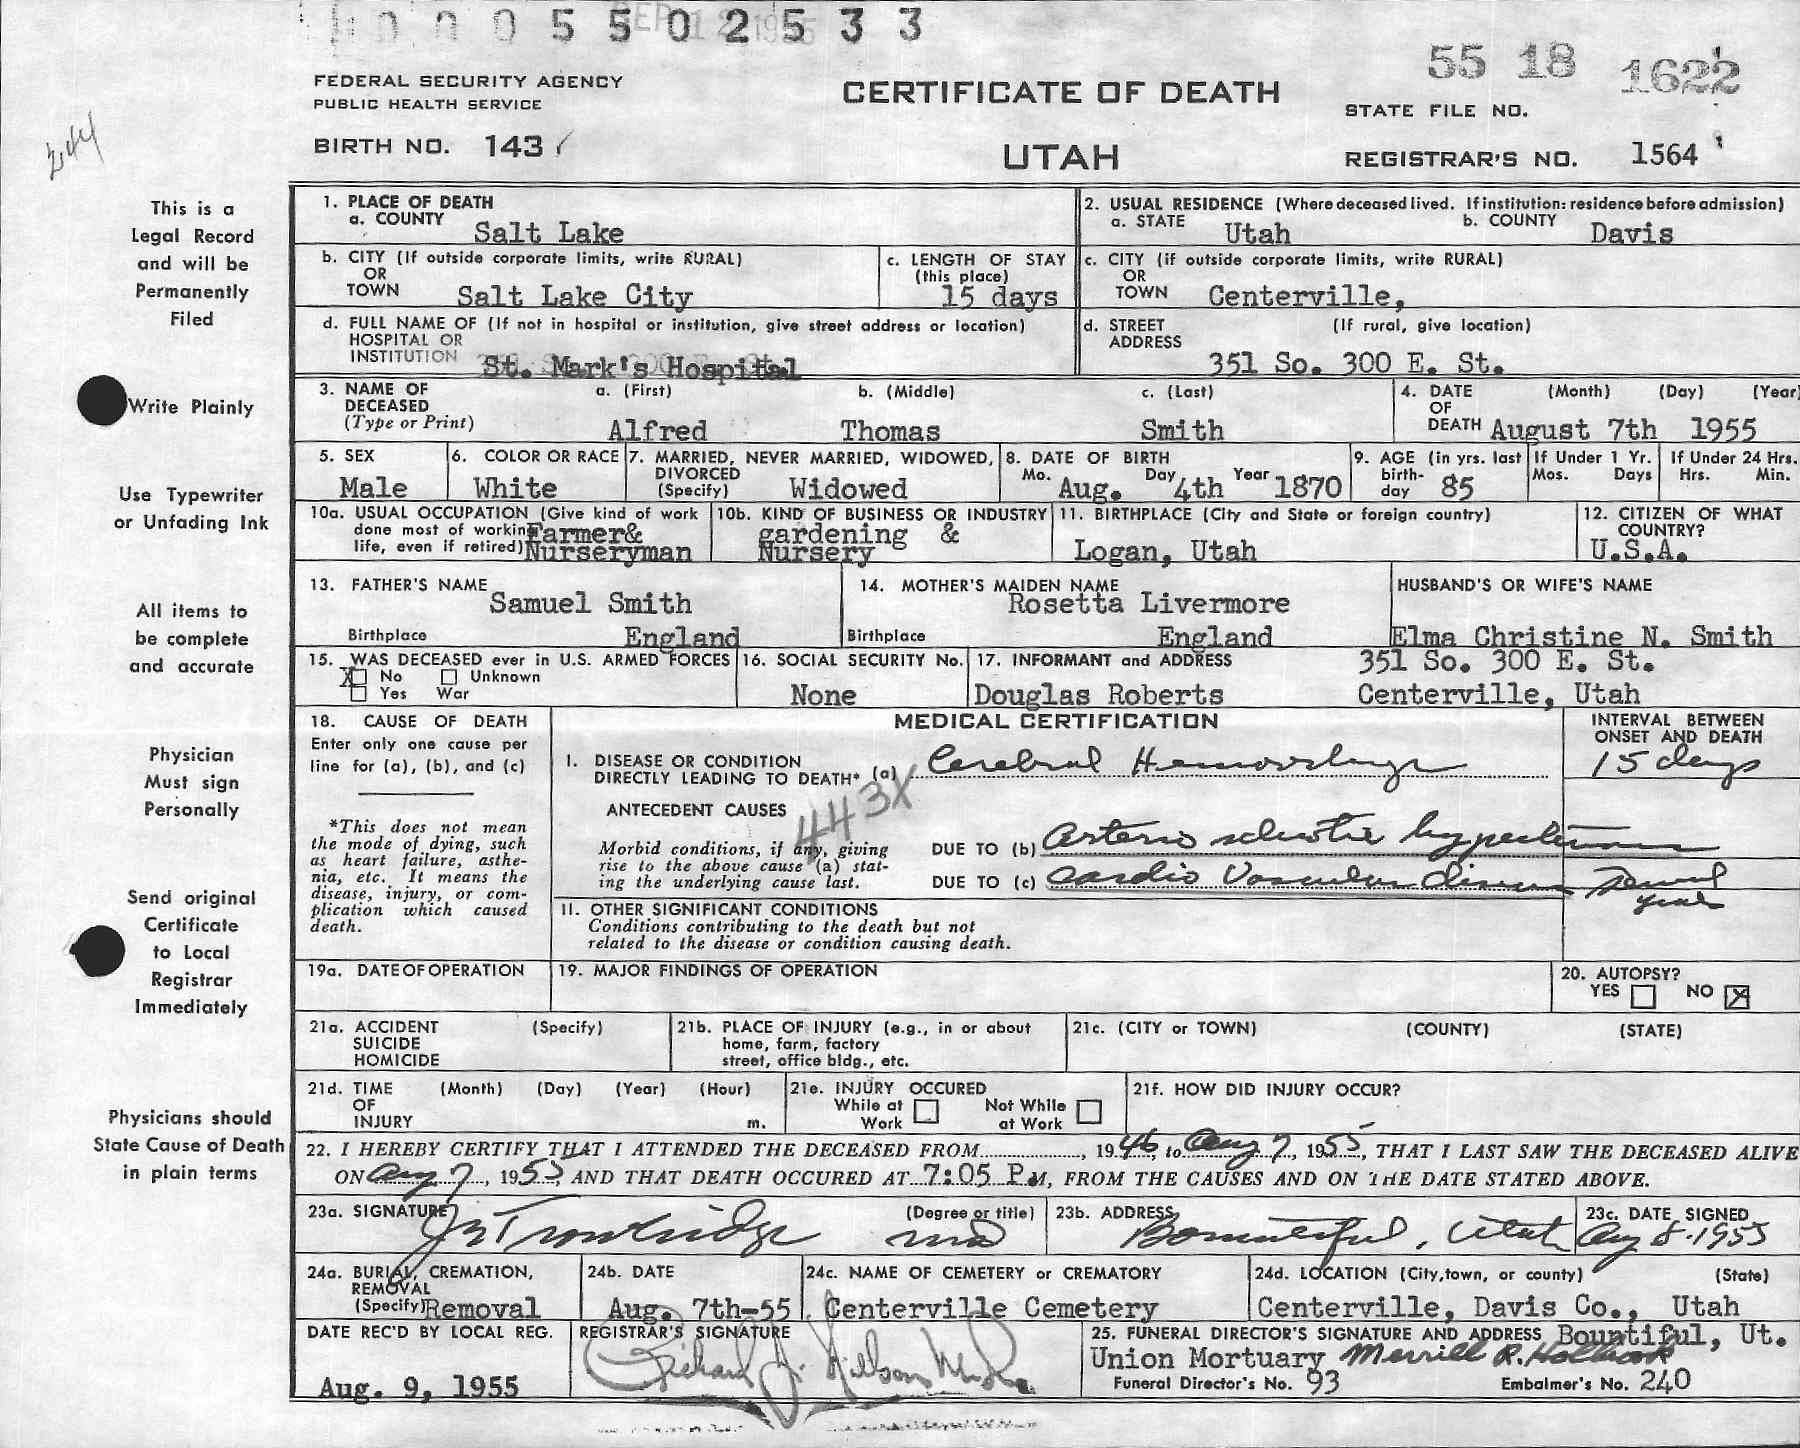 0 0 0 5 5 0 2 5 3 3
SEP 12 1955
55 18 1622
FEDERAL SECURITY AGENCY
PUBLIC HEALTH SERVICE
BIRTH NO. 143
CERTIFICATE OF DEATH
UTAH
STATE FILE NO.
REGISTRAR'S NO. 1564
244
This is a
Legal Record
and will be
Permanently
Filed
Write Plainly
Use Typewriter
or Unfading Ink
All items to
be complete
and accurate
Physician
Must sign
Personally
Send original
Certificate
to Local
Registrar
Immediately
Physicians should
State Cause of Death
in plain terms
1. PLACE OF DEATH
a. COUNTY Salt Lake
2. USUAL RESIDENCE (Where deceased lived. If institution: residence before admission)
a. STATE Utah b. COUNTY Davis
b. CITY (If outside corporate limits, write RURAL)
OR
TOWN Salt Lake City
c. LENGTH OF STAY
(this place)
15 days
c. CITY (if outside corporate limits, write RURAL)
OR
TOWN Centerville,
d. FULL NAME OF (If not in hospital or institution, give street address or location)
HOSPITAL OR
INSTITUTION St. Mark's Hospital
d. STREET (If rural, give location)
ADDRESS
351 So. 300 E. St.
3. NAME OF a. (First) b. (Middle) c. (Last)
DECEASED
(Type or Print) Alfred Thomas Smith
4. DATE (Month) (Day) (Year)
OF
DEATH August 7th 1955
5. SEX
Male
6. COLOR OR RACE
White
7. MARRIED, NEVER MARRIED, WIDOWED,
DIVORCED
(Specify) Widowed
8. DATE OF BIRTH
Mo. Aug. Day 4th Year 1870
9. AGE (in yrs. last
birth-
day 85
If Under 1 Yr.
Mos. Days
If Under 24 Hrs.
Hrs. Min.
10a. USUAL OCCUPATION (Give kind of work
done most of working Farmer&
life, even if retired) Nurseryman
10b. KIND OF BUSINESS OR INDUSTRY
gardening &
Nursery
11. BIRTHPLACE (City and State or foreign country)
Logan, Utah
12. CITIZEN OF WHAT
COUNTRY?
U.S.A.
13. FATHER'S NAME
Samuel Smith
Birthplace England
14. MOTHER'S MAIDEN NAME
Rosetta Livermore
Birthplace England
HUSBAND'S OR WIFE'S NAME
Elma Christine N. Smith
15. WAS DECEASED ever in U.S. ARMED FORCES
X No Unknown
Yes War
16. SOCIAL SECURITY No.
None
17. INFORMANT and ADDRESS 351 So. 300 E. St.
Douglas Roberts Centerville, Utah
18. CAUSE OF DEATH
Enter only one cause per
line for (a), (b), and (c)
*This does not mean
the mode of dying, such
as heart failure, asthe-
nia, etc. It means the
disease, injury, or com-
plication which caused
death.
MEDICAL CERTIFICATION
INTERVAL BETWEEN
ONSET AND DEATH
I. DISEASE OR CONDITION
DIRECTLY LEADING TO DEATH* (a) Cerebral Hemorrhage 15 days
ANTECEDENT CAUSES
443X
Morbid conditions, if any, giving
rise to the above cause (a) stat-
ing the underlying cause last.
DUE TO (b) Arterio sclerotic hypertensive
DUE TO (c) Cardio Vascular disease Several
years
II. OTHER SIGNIFICANT CONDITIONS
Conditions contributing to the death but not
related to the disease or condition causing death.
19a. DATE OF OPERATION
19. MAJOR FINDINGS OF OPERATION
20. AUTOPSY?
YES NO X
21a. ACCIDENT (Specify)
SUICIDE
HOMICIDE
21b. PLACE OF INJURY (e.g., in or about
home, farm, factory
street, office bldg., etc.
21c. (CITY or TOWN) (COUNTY) (STATE)
21d. TIME (Month) (Day) (Year) (Hour)
OF
INJURY m.
21e. INJURY OCCURED
While at Not While
Work at Work
21f. HOW DID INJURY OCCUR?
22. I HEREBY CERTIFY THAT I ATTENDED THE DECEASED FROM, 1946, to Aug 7, 1955, THAT I LAST SAW THE DECEASED ALIVE
ON Aug 7, 1955 AND THAT DEATH OCCURED AT 7:05 P.M, FROM THE CAUSES AND ON THE DATE STATED ABOVE.
23a. SIGNATURE (Degree or title)
Trowbridge MD
23b. ADDRESS
Bountiful, Utah
23c. DATE SIGNED
Aug 8-1955
24a. BURIAL, CREMATION,
REMOVAL
(Specify) Removal
24b. DATE
Aug. 7th-55
24c. NAME OF CEMETERY or CREMATORY
Centerville Cemetery
24d. LOCATION (City, town, or county) (State)
Centerville, Davis Co., Utah
DATE REC'D BY LOCAL REG.
Aug. 9, 1955
REGISTRAR'S SIGNATURE
Richard J. Nelson
25. FUNERAL DIRECTOR'S SIGNATURE AND ADDRESS Bountiful, Ut.
Union Mortuary Merrill R. Holbrook
Funeral Director's No. 93 Embalmer's No. 240